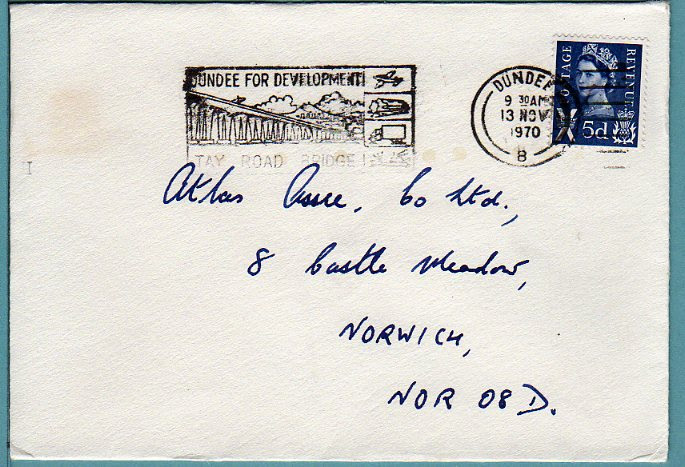 DUNDEE FOR DEVELOPMENT!
TAY ROAD BRIDGE!
DUNDEE
9 30AM
13 NOV
1970
B
POSTAGE
REVENUE
5d
Atlas Assce, Co Ltd.,
8 Castle Meadow,
NORWICH,
NOR 08D.